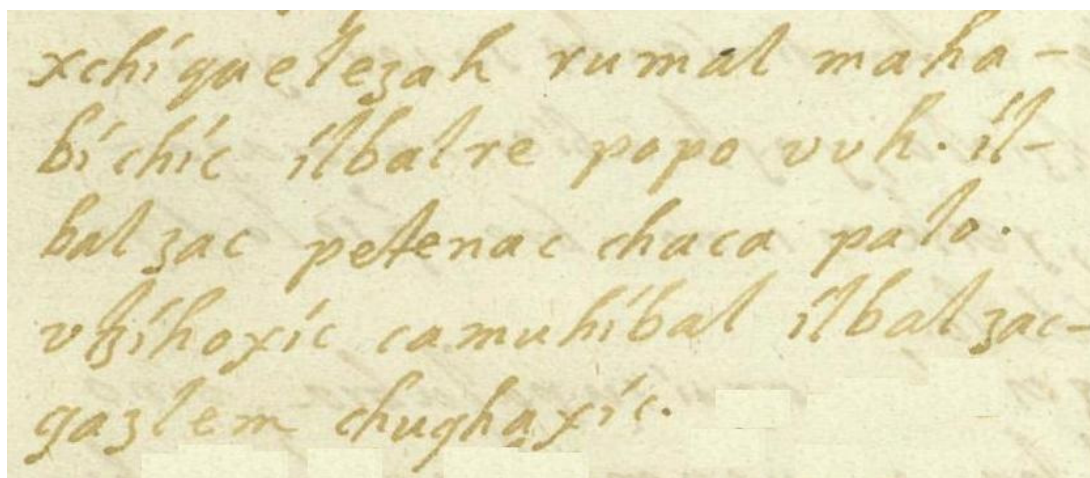 xchiquelezah rumal maha-
bi chic ilbalre popo vuh. il-
bal zac petenac chaca palo.
vtzihoxic camuhibal ilbal zac-
qazlem chughaxic.